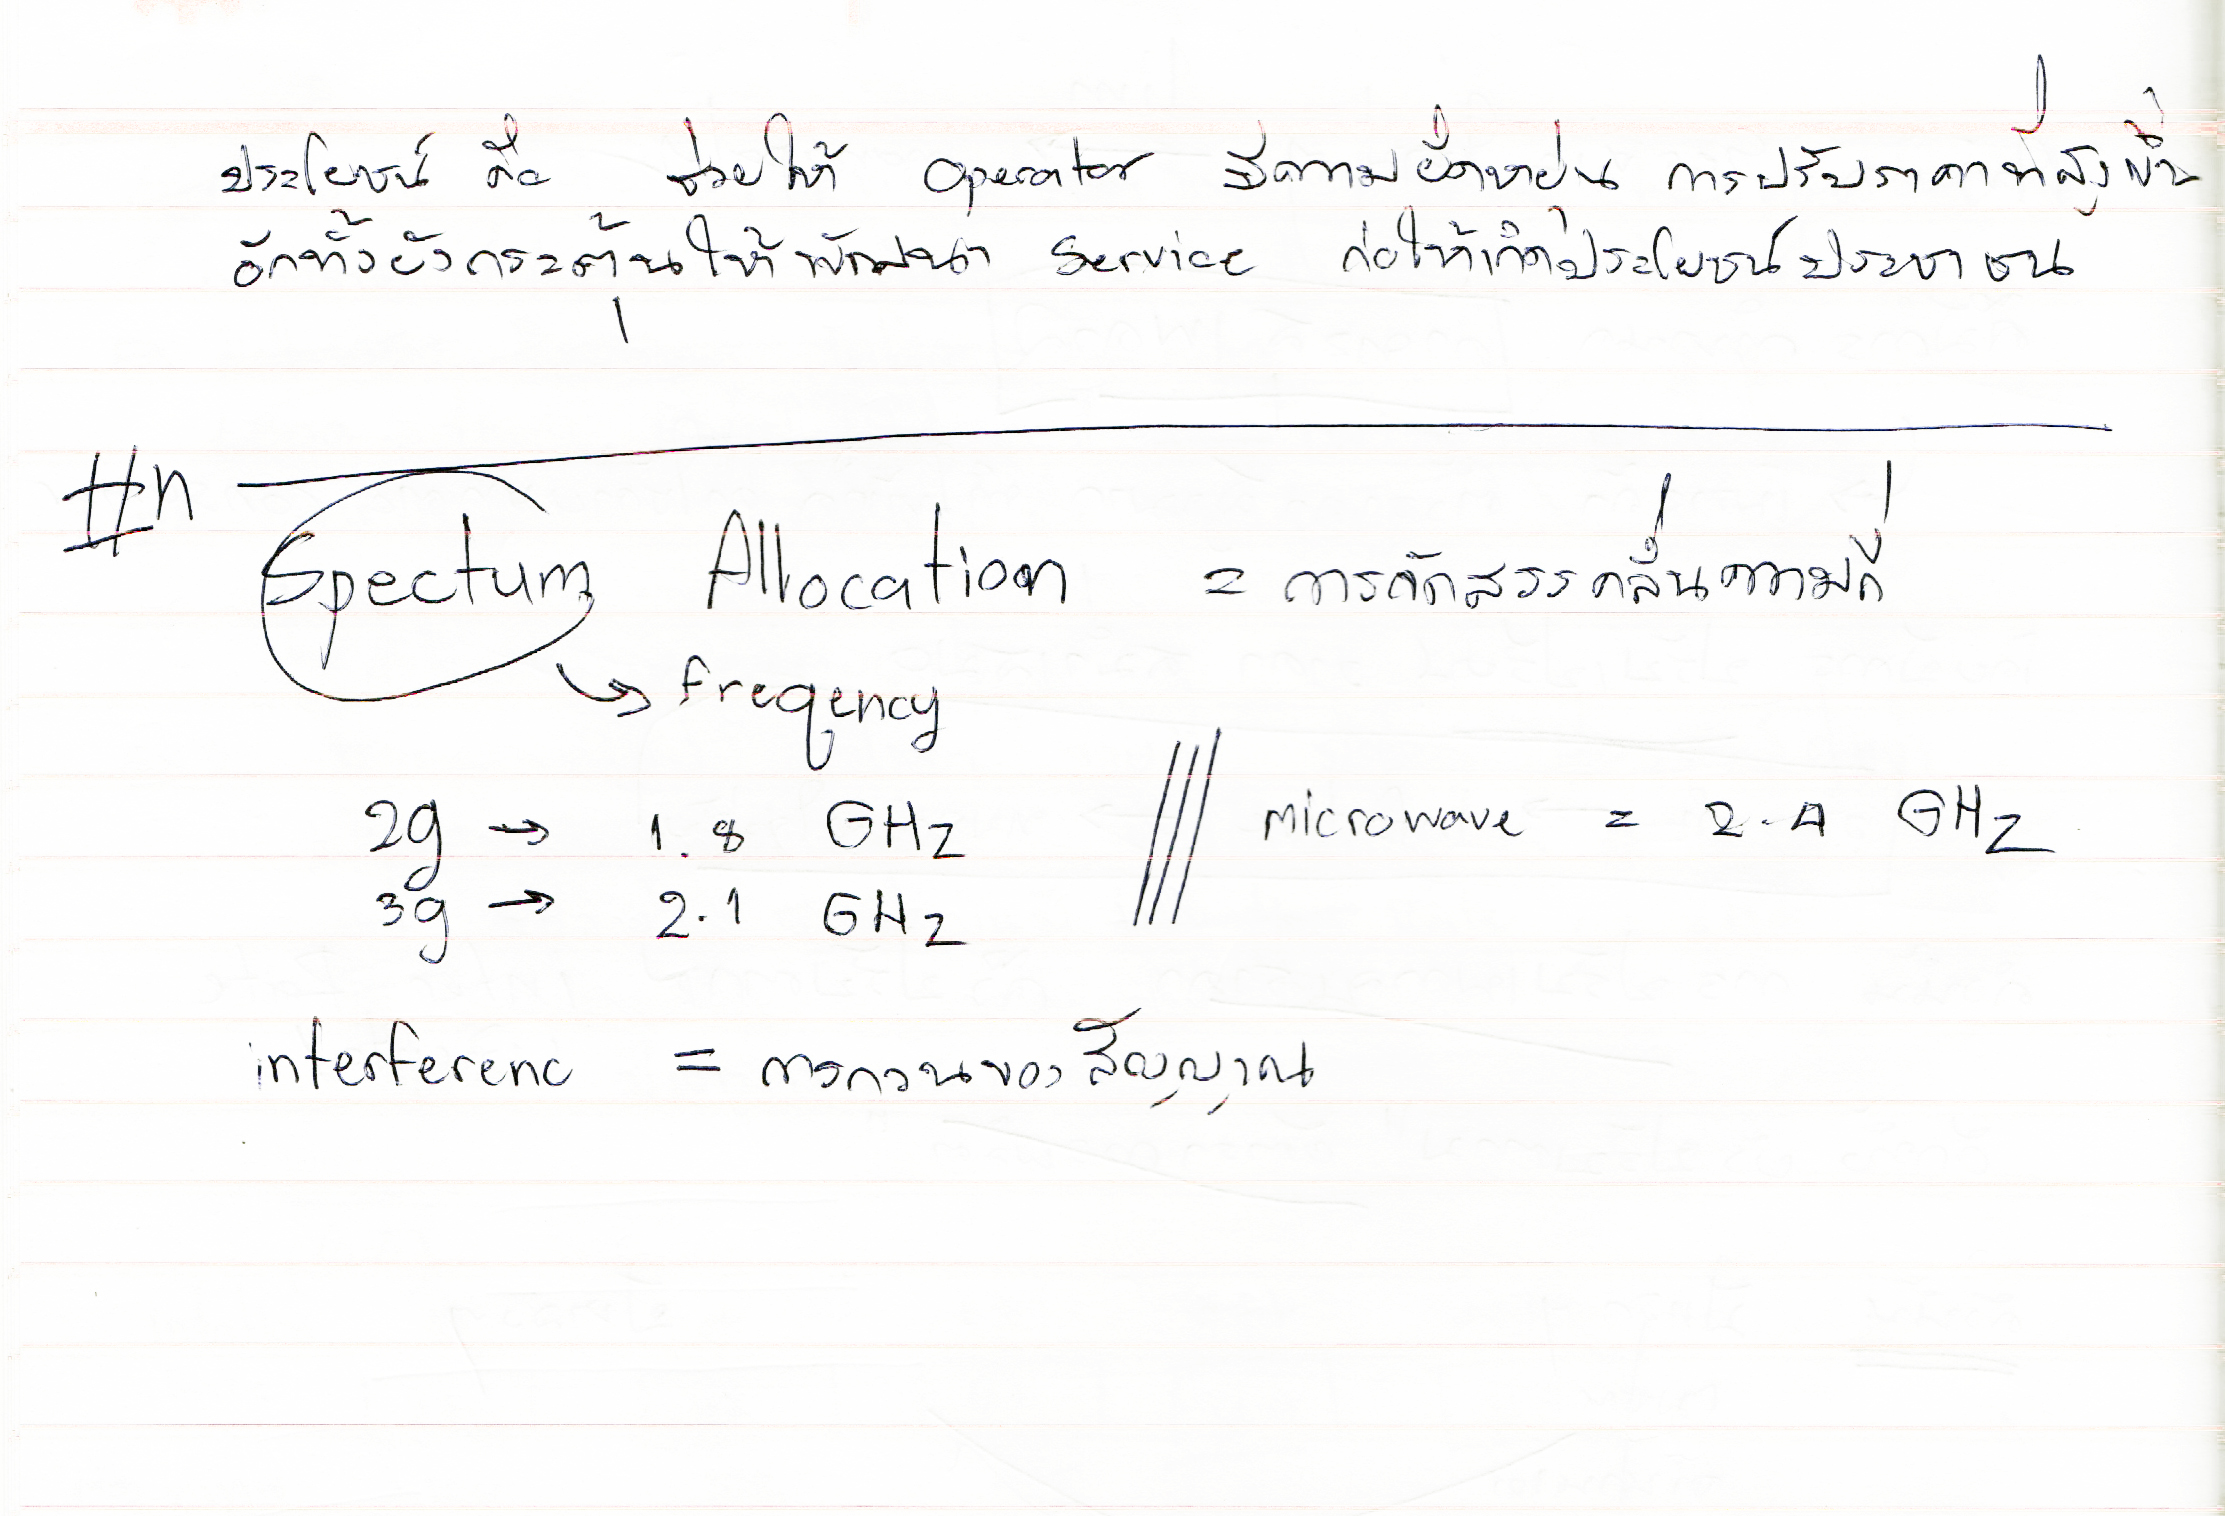 ประโยชน์ คือ ช่วยให้ operator มีความยืดหยุ่น การปรับราคาที่สูงขึ้น
อีกทั้งยังกระตุ้นให้พัฒนา Service ก่อให้เกิดประโยชน์ประชาชน
#n
Spectum Allocation = การจัดสรรคลื่นความถี่
freqency
2g → 1.8 GHz /// microwave = 2.4 GHz
3g → 2.1 GHz
interferenc = การกวนของสัญญาณ